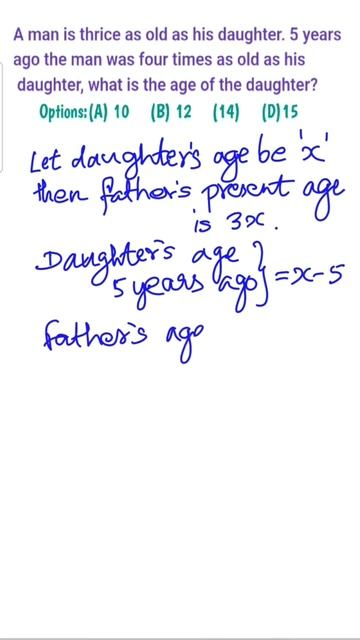 A man is thrice as old as his daughter. 5 years
ago the man was four times as old as his
daughter, what is the age of the daughter?
Options:(A) 10 (B) 12 (14) (D)15
Let daughter's age be 'x'
then father's present age
is 3x.
Daughter's age
5 years ago} = x-5
father's ago